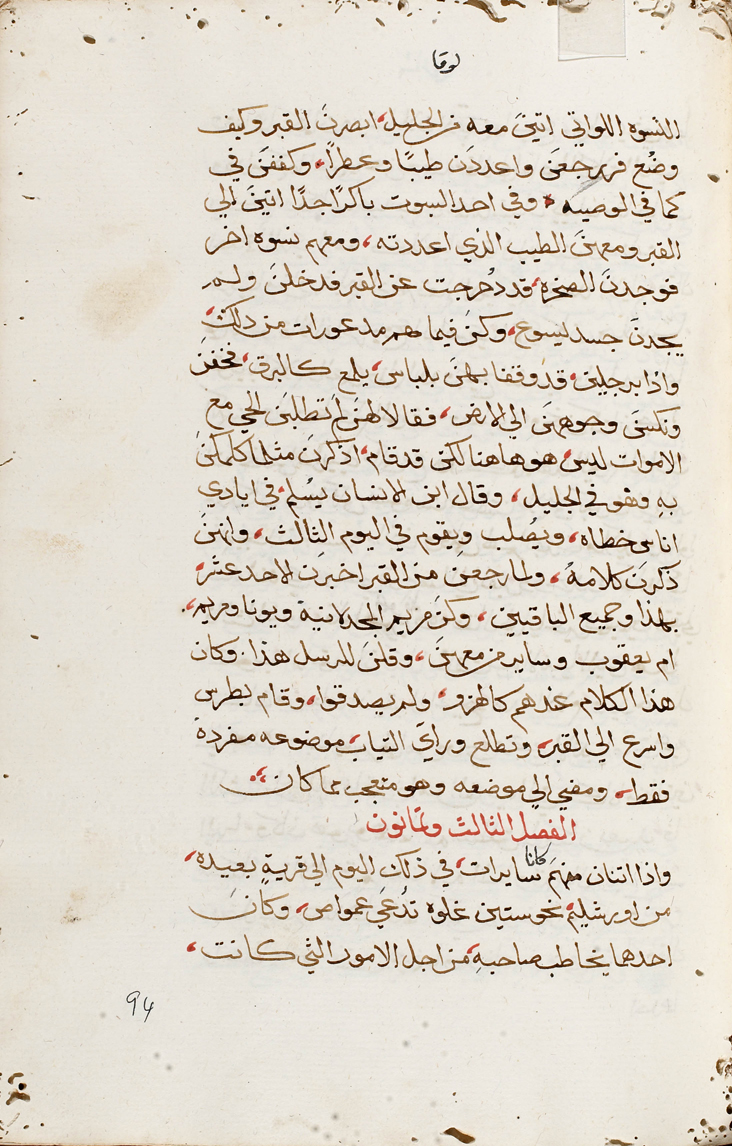 لوقا
النسوه اللواتي اتين معه من الجليل، ابصرنَ القبر وكيف
وضُع فرجعنَ واعددَن طيبًا وعطرًا، وكففنَ في
كما في الوصيه * وفي احد السبوت باكرًا جدًا اتينَ الي
القبر ومعهنَ الطيب الذي اعددته، ومعهم نسوه اخر
فوجدنَ الصخره، قد دُحرجت عن القبر فدخلنَ ولم
يجدنَ جسد ليسوع، وكنَ فيما هم مدعورات من دالك،
واذا برجلين، قد وقفا بهنَ بلباس، يلمع كالبرق، فخفنَ
ونكسنَ وجوههنَ الي الارض، فقالا لهنَ لمَ تطلبنَ الحي مع
الاموات ليس، هو هاهنا لكن قد قام، اذكرنَ مثلما كلمكنَ
بهِ وهو في الجليل، وقال ابن الانسان يسُلم، في ايادي
اناس خطاه، ويصُلب ويقوم في اليوم الثالث، وانهنَ
ذكرنَ كلامهُ، ولما رجعن من القبر اخبرن الاحد عشر،
بهذا وجميع الباقيين، وكنَ مريم المجدلانية ويونا ومريم،
ام يعقوب وساير من معهنَ، وقلنَ للرسل هذا. وكان
هذا الكلام عندهم كالهزو، ولم يصدقوا، وقام بطرس
واسرع الي القبر، وتطلع وراىَ التياب، موضوعه مفردة
فقط، ومضي الي موضعه وهو متعجب مما كان
الفصل الثالث وثمانون
واذا اتنان منهمَ كانا سايرات، في ذلك اليوم الي قريةٍ بعيده،
من اورشليم، نحوستين غلوه تدُعَي عمواص، وكانَ
احدهما يخاطب صاحبهِ، من اجل الامور التي كانت،
94